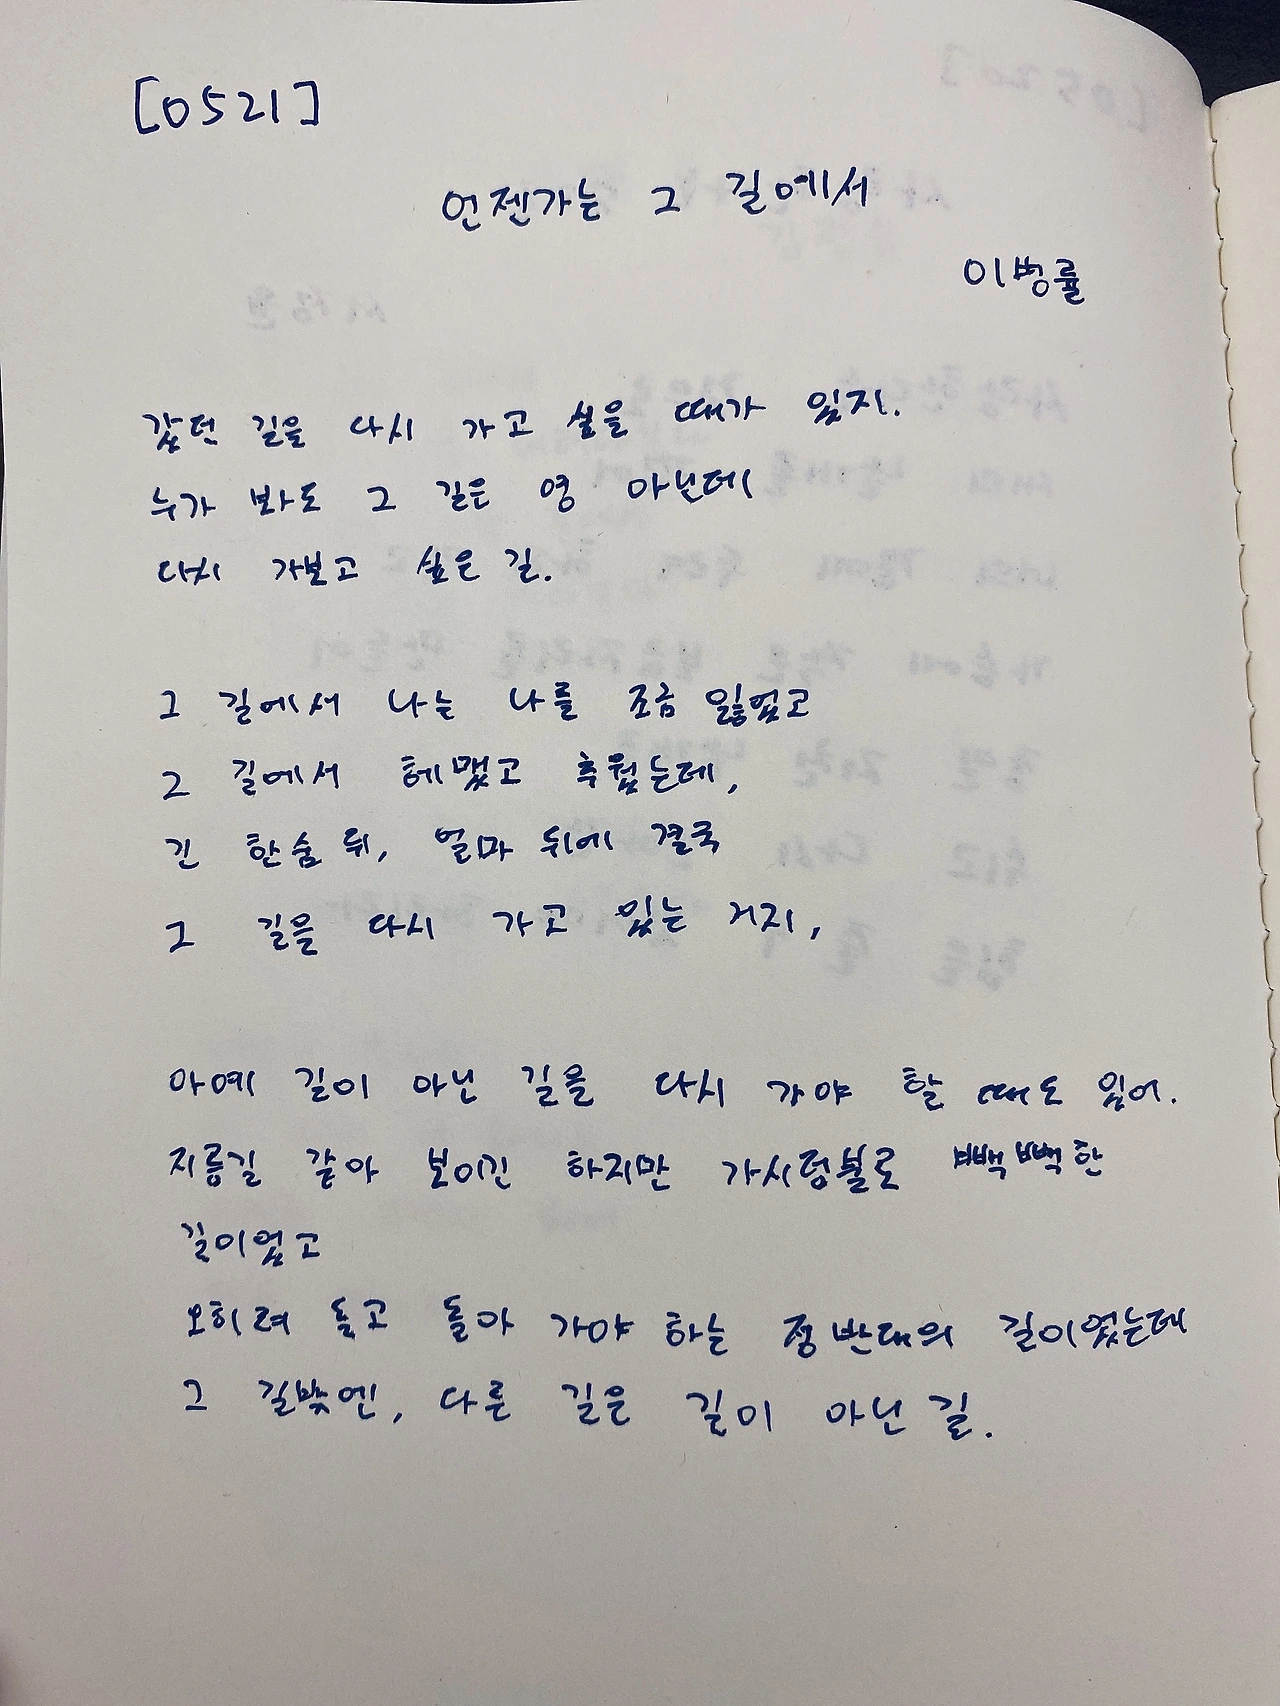 [0521]
언젠가는 그 길에서
이병률
갔던 길을 다시 가고 싶을 때가 있지.
누가 봐도 그 길은 영 아닌데
다시 가보고 싶은 길.
그 길에서 나는 나를 조금 잃었고
그 길에서 헤맸고 추웠는데,
긴 한숨 뒤, 얼마 뒤에 결국
그 길을 다시 가고 있는 거지,
아예 길이 아닌 길을 다시 가야 할 때도 있어.
지름길 같아 보이긴 하지만 가시덩불로 빽빽한
길이었고
오히려 돌고 돌아 가야 하는 정반대의 길이었는데
그 길밖엔, 다른 길은 길이 아닌 길.